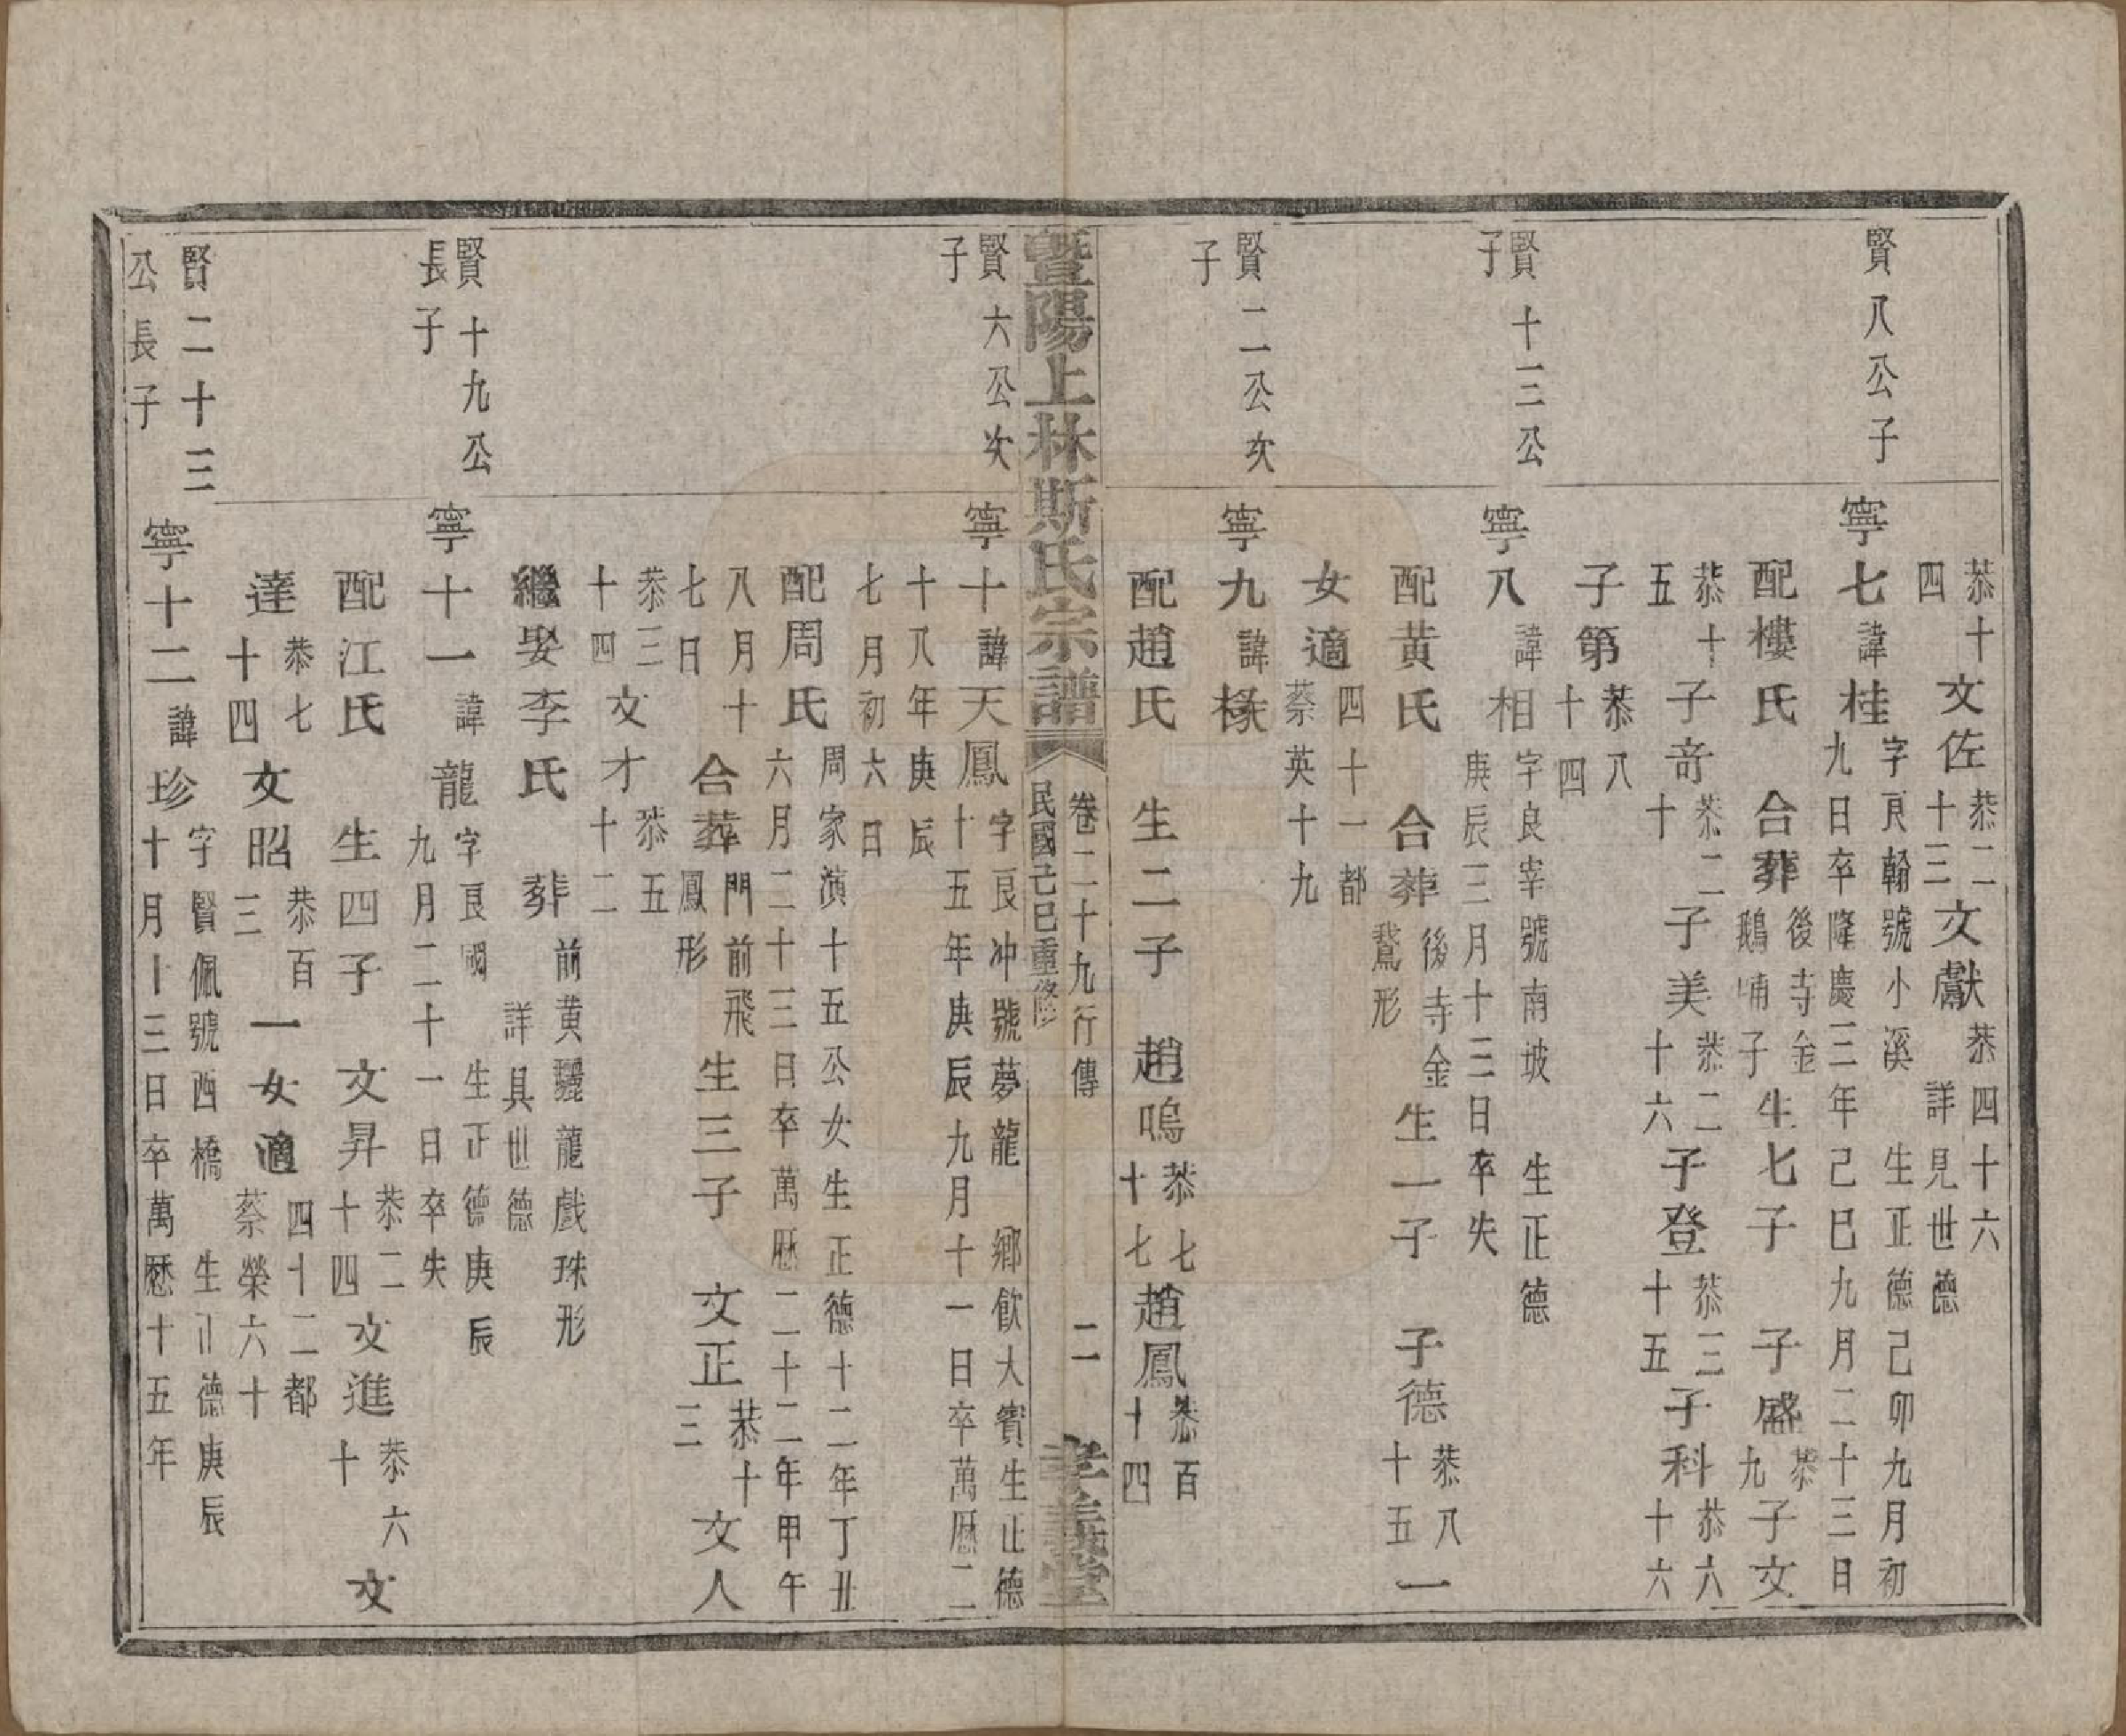 恭十四 文佐 恭二十三 文獻 恭四十六 詳見世德
賢八公子
寧七 諱桂 字𠄘翰號小溪 生正德己卯九月初九日卒隆慶三年己巳九月二十三日
配樓氏 合葬 後寺金鵝哺子 生七子 子盛 恭九 子文
恭十五 子奇 恭二十 子美 恭二十六 子登 恭三十五 子科 恭六十六
子第 恭八十四
賢十三公子
寧八 諱相 字良宰號南坡 生正德庚辰三月十三日卒失
配黃氏 合葬 後寺金鵞形 生一子 子德 恭八十五 一
女適 四十一都蔡英十九
賢二公次子
寧九 諱椽
配趙氏 生二子 趙鳴 恭七十七 趙鳳 恭百十四
暨陽上林斯氏宗譜 卷二十九行傳 民國己巳重修 二 孝義堂
賢六公次子
寧十 諱天鳳 字良冲號夢龍 鄉飲大賓生正德十五年庚辰九月十一日卒萬厯二
十八年庚辰七月初六日
配周氏 周家演十五公女生正德十二年丁丑六月二十三日卒萬厯二十二年甲午
八月十七日 合葬 門前飛鳳形 生三子 文正 恭十三 文人
恭三十四 文才 恭五十二
繼娶李氏 葬 前黃驪龍戲珠形 詳具世德
賢十九公長子
寧十一 諱龍 字良國 生正德庚辰九月二十一日卒失
配江氏 生四子 文昇 恭二十四 文進 恭六十 文
達 恭七十四 文昭 恭百三 一女適 四十二都蔡榮六十
賢二十三公長子
寧十二 諱珍 字賢佩號西橋 生正德庚辰十月十三日卒萬厯十五年